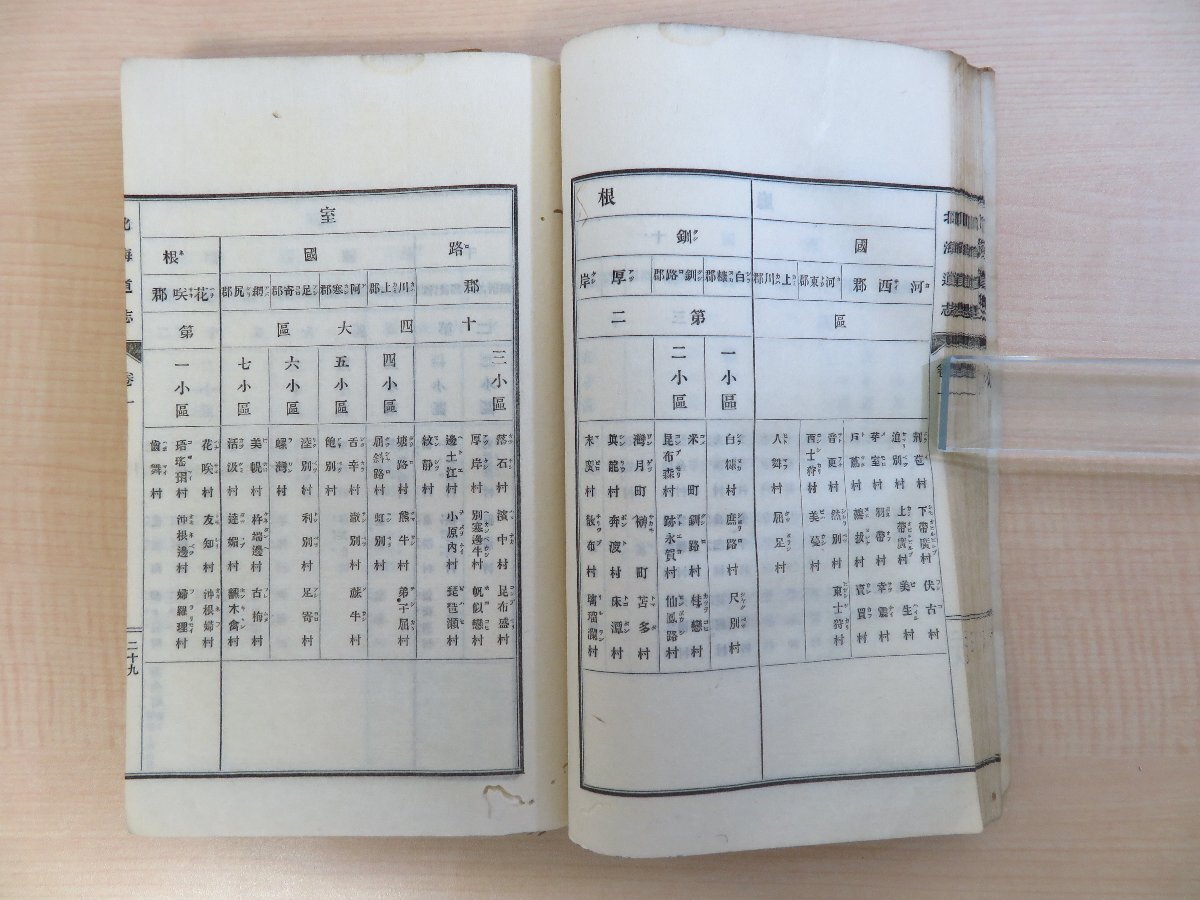 北海道志
國
河西郡
河東郡
上川郡
區
荊苞
下帶廣村
伏古村
迫別
上帶廣村
美生村
芽室
羽帶
幸震村
戶蔦
讓拔
賣買村
音更村
然別村
西士狩村
美蔓村
東士狩村
人舞村
屈足村
根
釧
白糠郡
釧路郡
厚岸
第二
一小區
二小區
白糠村
庶路村
尺別村
米町
釧路村
桂戀村
昆布森村
跡永賀村
仙鳳路村
灣月町
榊町
苫多村
眞龍村
奔渡村
床潭村
末廣村
散布村
璃瑠瀾村
室
路國
郡
川上郡
阿寒郡
足寄郡
網尻郡
十四大區
三小區
四小區
五小區
六小區
七小區
落石村
濱中村
昆布盛村
厚岸村
別寒邊牛村
帆似戀村
邊土江村
小原內村
琵琶瀨村
紋靜村
塘路村
熊牛村
弟子屈村
屈斜路村
虹別村
舌辛村
徹別村
蘇牛村
飽別村
陸別村
利別村
足寄村
螺灣村
美幌村
杵端邊村
古梅村
活汲村
達媚村
飜木禽村
根
花咲郡
第
一小區
花咲村
友知村
沖根婦村
珸瑤瑁村
沖根邊村
婦羅理村
齒舞村
北海道志
卷一
二十九